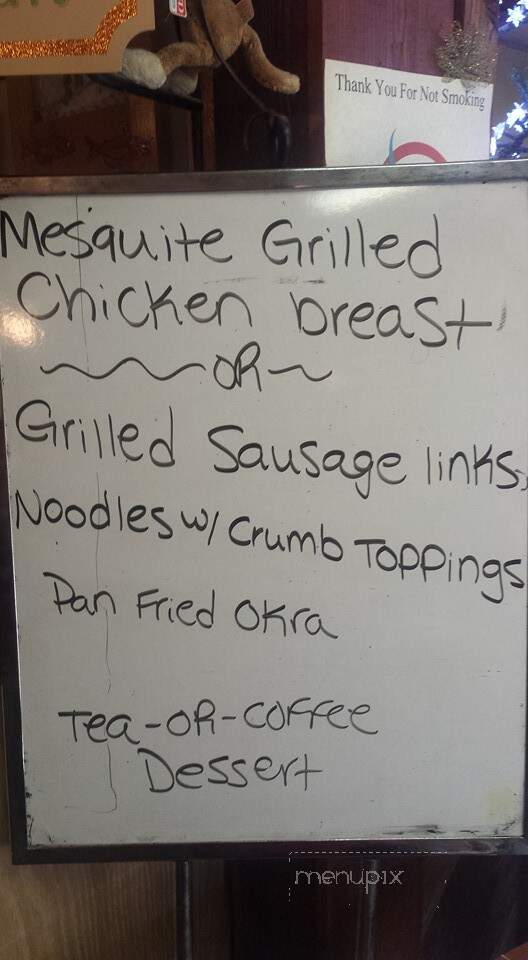 Thank You For Not Smoking
Mesquite Grilled
Chicken breast
OR
Grilled Sausage links,
Noodles w/ Crumb Toppings
Pan Fried Okra
Tea-OR-Coffee
Dessert
menupix